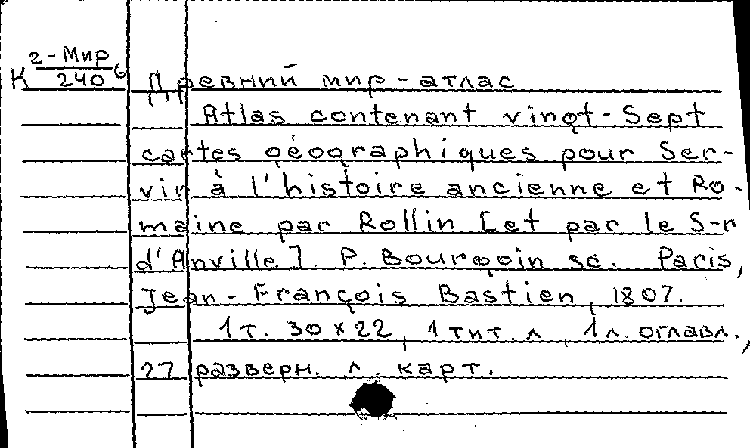 К 2-Мир
240 б
Древний мир-атлас
Atlas contenant vingt-Sept
cartes géographiques pour Ser-
vir à l'histoire ancienne et Ro-
maine par Rollin [et par le S-r
d'Anville]. P. Bourgoin sc. Paris,
Jean-François Bastien, 1807.
1т. 30×22, 1 тит. л, 1 л. оглавл.,
27 разверн. л. карт.